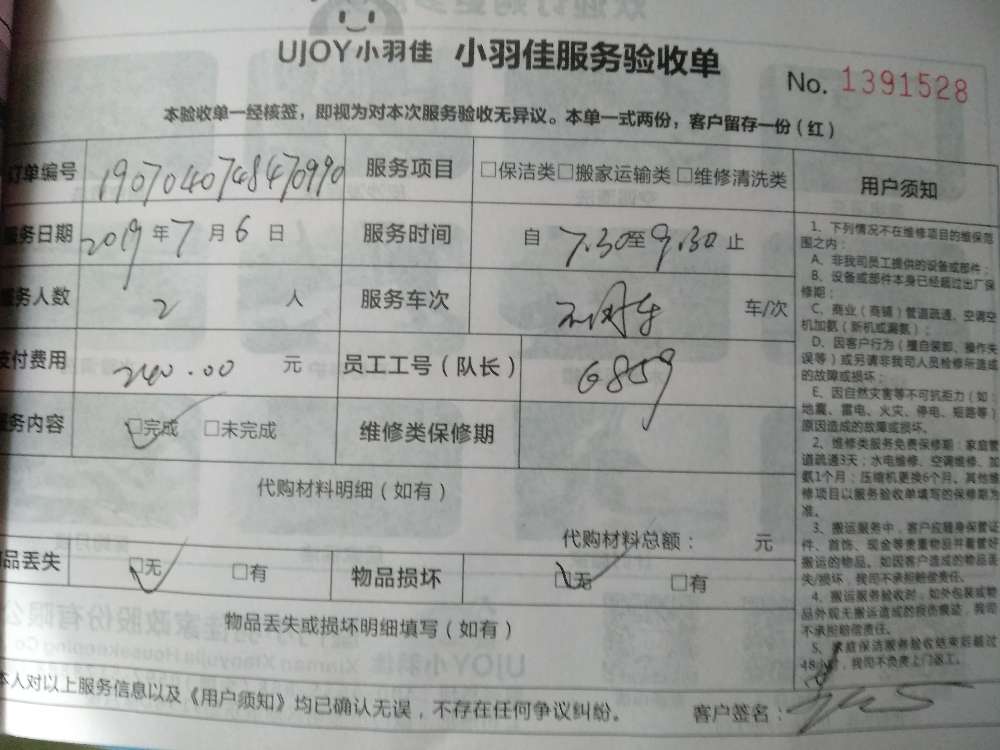 UJOY小羽佳 小羽佳服务验收单
No. 1391528
本验收单一经核签，即视为对本次服务验收无异议。本单一式两份，客户留存一份（红）
订单编号 1907040748470990 服务项目 □保洁类□搬家运输类 □维修清洗类
服务日期 2019 年 7 月 6 日 服务时间 自 7.30 至 9.30 止
服务人数 2 人 服务车次 车/次
支付费用 240.00 元 员工工号（队长） 6859
服务内容 □完成 □未完成 维修类保修期
代购材料明细（如有）
代购材料总额： 元
物品丢失 □无 □有 物品损坏 □无 □有
物品丢失或损坏明细填写（如有）
本人对以上服务信息以及《用户须知》均已确认无误，不存在任何争议纠纷。 客户签名：
用户须知
1、下列情况不在维修项目的维保范
围之内：
A、非我司员工提供的设备或部件；
B、设备或部件本身已经超过出厂保
修期；
C、商业（商铺）管道疏通、空调空
机加氨（新机或漏氨）；
D、因客户行为（擅自装卸、操作失
误等）或另请非我司人员检修所造成
的故障或损坏；
E、因自然灾害等不可抗拒力（如：
地震、雷电、火灾、停电、短路等）
原因造成的故障或损坏。
2、维修类服务免费保修期：家庭管
道疏通3天；水电维修、空调维修、加
氨1个月；压缩机更换6个月。其他维
修项目以服务验收单填写的保修期为
准。
3、搬运服务中，客户应随身保管证
件、首饰、现金等贵重物品并看管好
搬运的物品。如因客户造成的物品丢
失/损坏，我司不承担赔偿责任。
4、搬运服务验收时，如外包装或物
品外观无搬运造成的损伤痕迹，我司
不承担赔偿责任。
5、家庭保洁服务验收结束后超过
48小时，我司不负责上门返工。